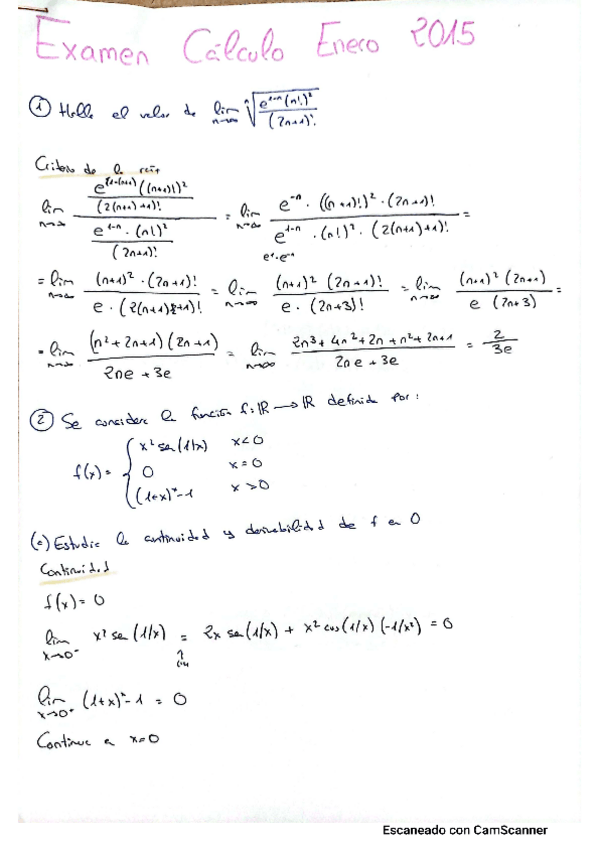 Examen Cálculo Enero 2015
① Halle el valor de lim n→∞ ⁿ√(e^(1-n) (n!)² / (2n+1)!)
Criterio de la
lim n→∞ [e^(1-(n+1)) ((n+1)!)² / (2(n+1)+1)!] / [e^(1-n) · (n!)² / (2n+1)!] = lim n→∞ e^(-n) · ((n+1)!)² · (2n+1)! / e^(1-n) · (n!)² · (2(n+1)+1)! =
e¹·e⁻ⁿ
= lim n→∞ (n+1)² · (2n+1)! / e · (2(n+1)+1)! = lim n→∞ (n+1)² (2n+1)! / e · (2n+3)! = lim n→∞ (n+1)² (2n+1) / e (2n+3) =
= lim n→∞ (n²+2n+1)(2n+1) / 2ne+3e = lim n→∞ 2n³+4n²+2n+n²+2n+1 / 2ne+3e = 2/3e
② Se considera la función f: ℝ → ℝ definida por:
f(x) = { x² sen(1/x) x<0
0 x=0
(1+x)ˣ-1 x>0
(a) Estudie la continuidad y derivabilidad de f en 0
Continuidad
f(x) = 0
lim x→0⁻ x² sen(1/x) = 2x sen(1/x) + x² cos(1/x)(-1/x²) = 0
↑
lim
lim x→0⁺ (1+x)ˣ-1 = 0
Continua x=0
Escaneado con CamScanner